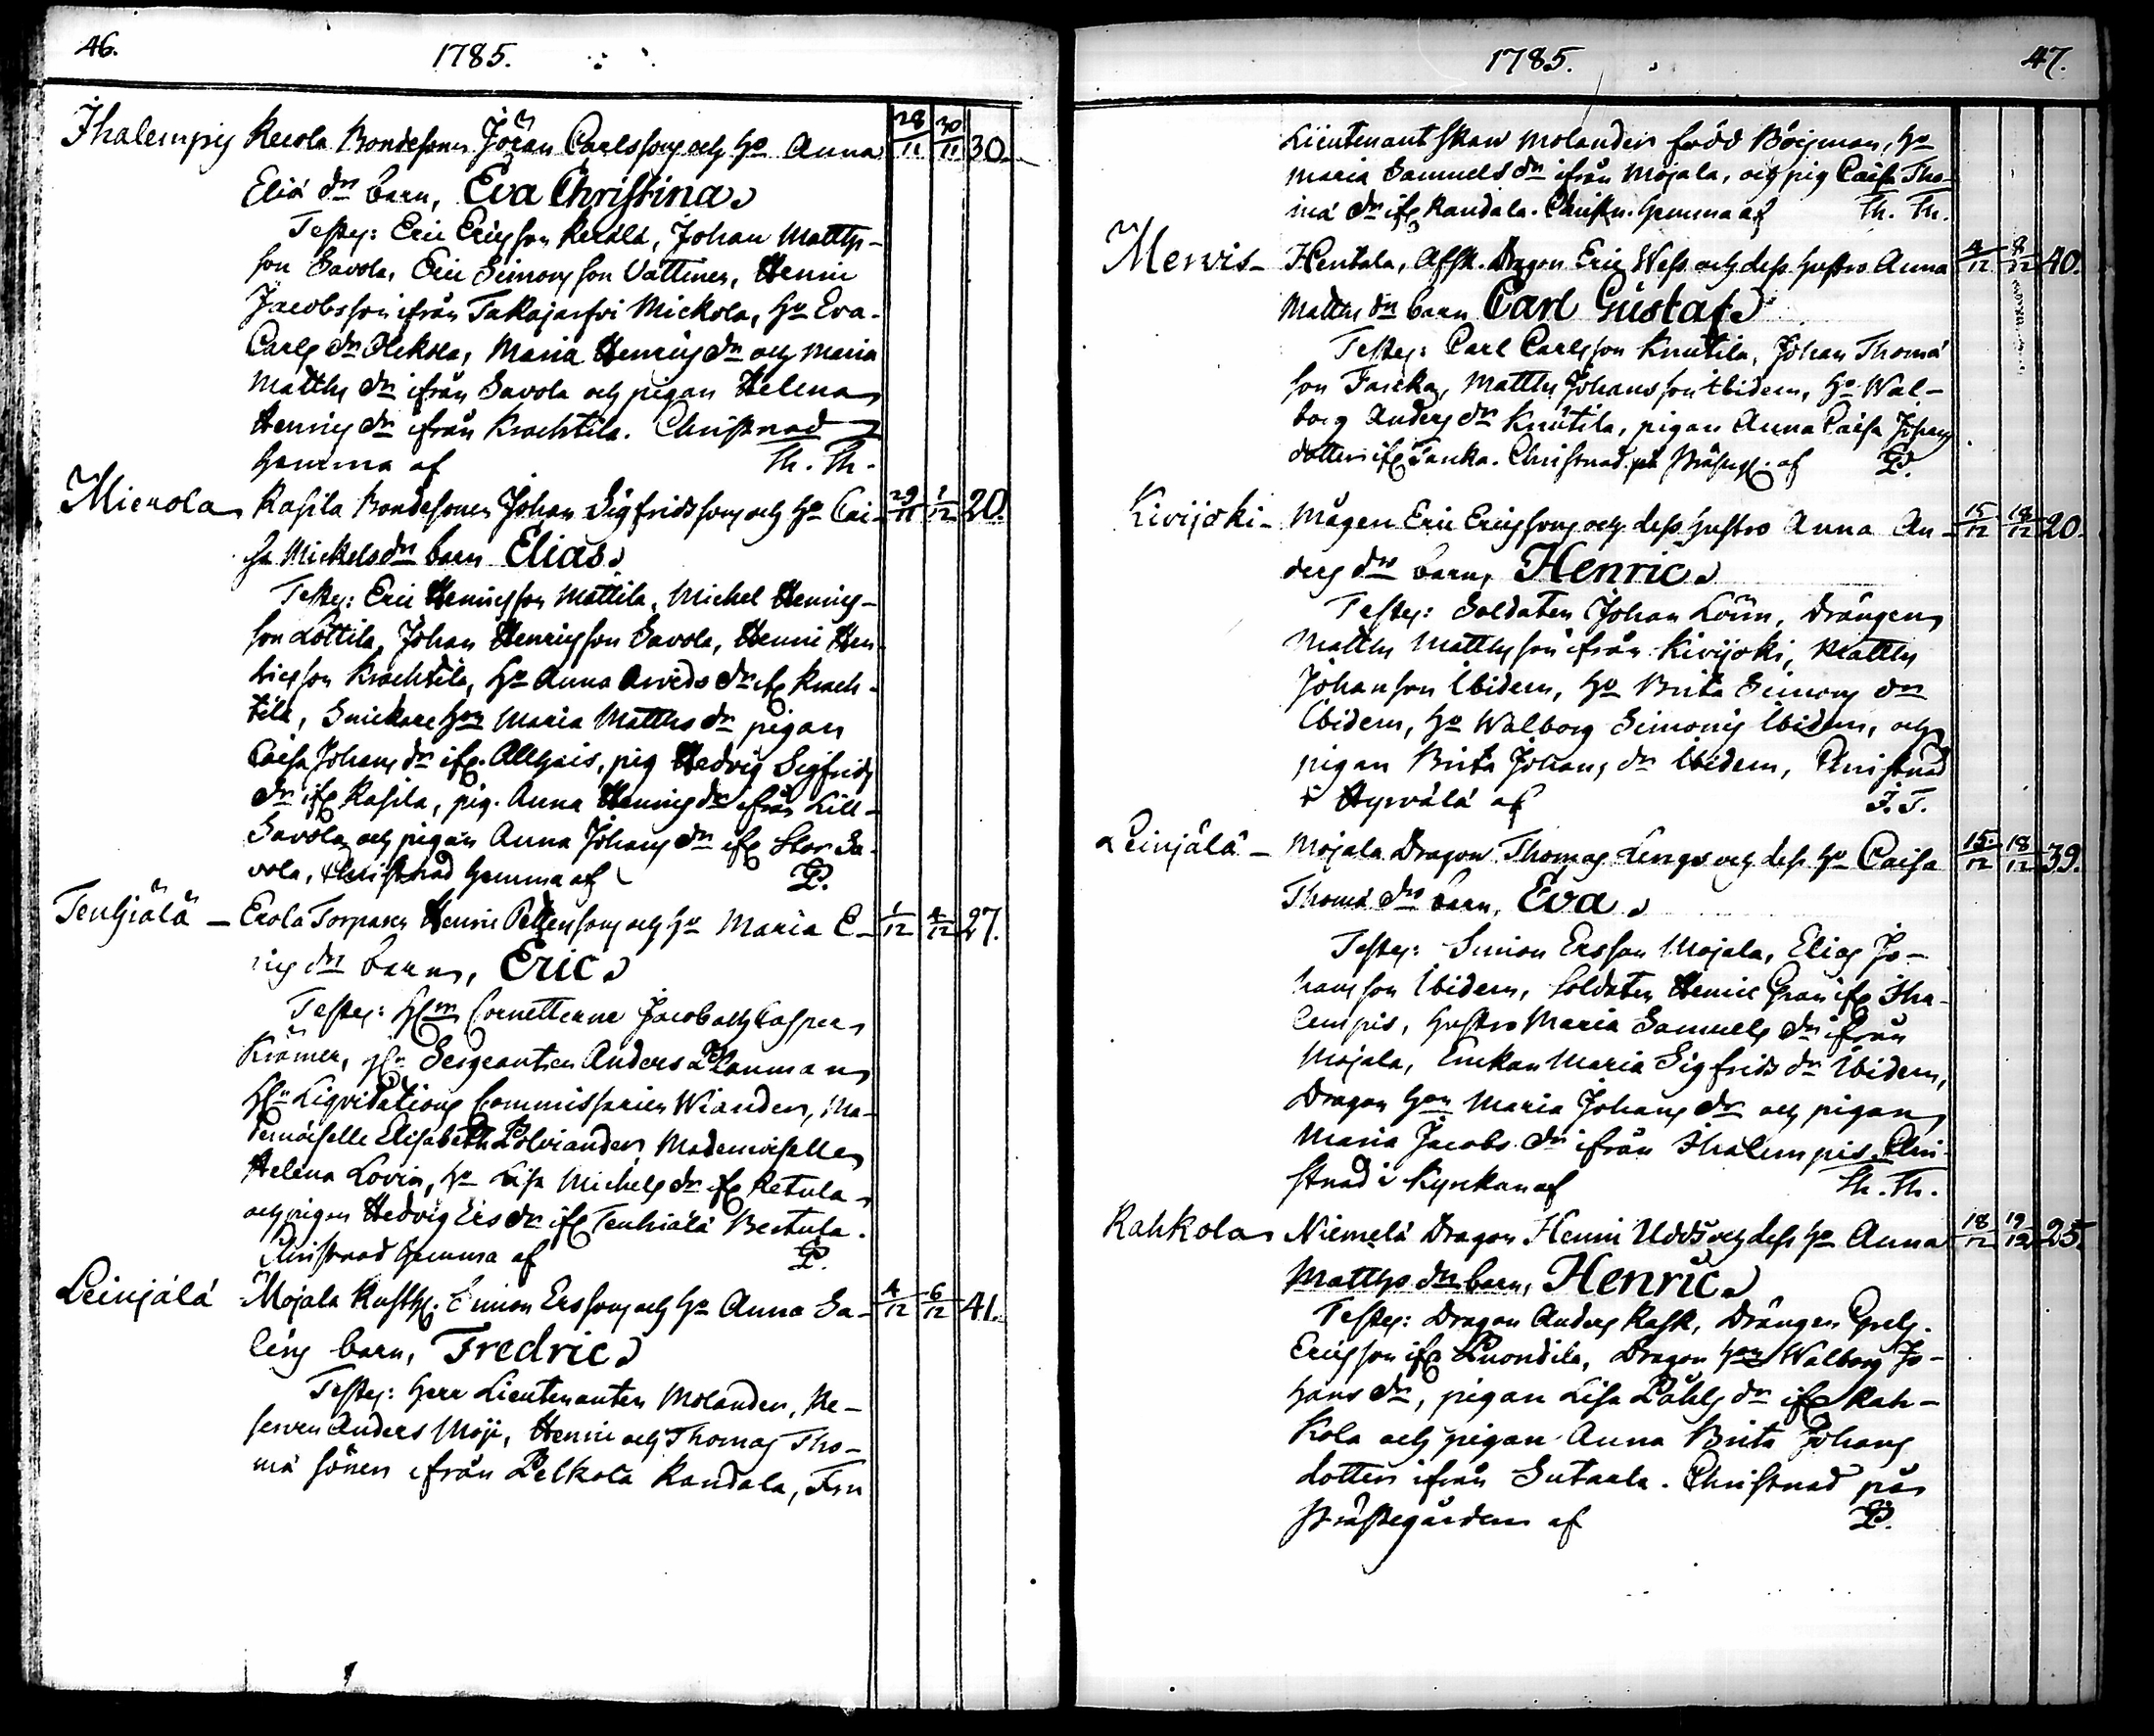 46. 1785.
Ihalempis Recola Bondesonen Jöran Carlssons och Ho Anna 28/11 30/11 30.
Eliæ dr barn, Eva Christina
Testes: Eric Ericsson Recola, Johan Matths-
son Savola, Eric Simonsson Vattinen, Henric
Jacobsson ifrån Takajarfvi Mickola, Ho Eva
Carls dr Mickola, Maria Henrics dr och Maria
Matths dr ifrån Savola och pigan Helena
Henrics dr ifrån Krachtila. Christnad
hemma af Th. Th.
Mienola Rasila Bondesonen Johan Sigfridssons och Ho Cai- 29/11 1/12 20.
sa Mickels dr barn Elias
Testes: Eric Henricsson Mattila, Michel Henrics-
son Lottila, Johan Henricsson Savola, Henric Hen
ricsson Krachtila, Ho Anna Arvids dr ifr Krach-
tila, Snickare Hon Maria Matths dr pigan
Caisa Johans dr ifr. Alhais, pig Hedvig Sigfrids
dr ifr Rasila, pig. Anna Henrics dr ifrån Lill-
Savola och pigan Anna Johans dr ifr Stor Sa-
vola, Christnad hemma af P.
Tenhiälä - Erola Torparen Henric Pettersons och Ho Maria E- 1/12 4/12 27.
rics dr barn, Eric
Testes: Hrn Cornetterne Jacob och Casper
Krämer, Hr Sergeanten Anders Planman
Hrn Liqvidations Commissarien Wiander, Ma-
demoiselle Elisabeth Polviander, Mademoiselle
Helena Lovin, Ho Lisa Michels dr ifr Retula
och pigan Hedvig Ers dr ifr Tenhiälä Bertula.
Christnad hemma af P.
Leinjälä Mojala Rusth. Simon Erssons och Ho Anna Sa- 4/12 6/12 41.
lins barn, Fredric
Testes: Herr Lieutenanten Molander, Re-
serven Anders Moje, Henric och Thomas Tho-
mæ söner ifrån Pelkola Randala, Fru
1785. 47.
Lieutenantskan Molander född Böijman, Ho
Maria Samuels dr ifrån Mojala, och pig Caisa Tho-
mæ dr ifr Randala. Christn. hemma af Th. Th.
Mervis- Hentola, Afsk. Dragon Eric Wess och dess hustro Anna 4/12 8/12 40.
Matths dr barn Carl Gustaf
Testes: Carl Carlsson Knutila, Johan Thomæ
son Tancka, Matths Johansson ibidem, Ho Wal-
borg Anders dr Knutila, pigan Anna Caisa Johans
dotter ifr Tanka. Christnad på Prästg. af P.
Kivijoki- Mågen Eric Ericssons och dess hustro Anna An- 15/12 18/12 20.
ders dr barn, Henric
Testes: Soldaten Johan Lönn, Drängen
Matths Matthsson ifrån Kivijoki, Matths
Johansson ibidem, Ho Brita Simons dr
ibidem, Ho Walborg Simonis ibidem, och
pigan Brita Johans dr ibidem, Christnad
i Hyrvälä af J. T.
Leinjälä - Mojala Dragon Thomas Lengs och dess Ho Caisa 15/12 18/12 39.
Thomæ dr barn, Eva
Testes: Simon Ersson Mojala, Elias Jo-
hansson ibidem, Soldaten Henric Gran ifr Iha-
lempis, hustro Maria Samuels dr ifrån
Mojala, Enkan Maria Sigfrids dr ibidem,
Dragon Hon Maria Johans dr och pigan
Maria Jacobs dr ifrån Ihalempis. Chri-
stnad i Kyrkan af Th. Th.
Rahkola Niemelä Dragon Henric Udds och dess Ho Anna 18/12 19/12 25.
Matths dr barn, Henric
Testes: Dragon Anders Rask, Drängen Grels
Ericsson ifr Luondila, Dragon Hon Walborg Jo-
hans dr, pigan Lisa Påhls dr ifr Rah-
kola och pigan Anna Brita Johans
dotter ifrån Sutaala. Christnad på
Prästegården af P.